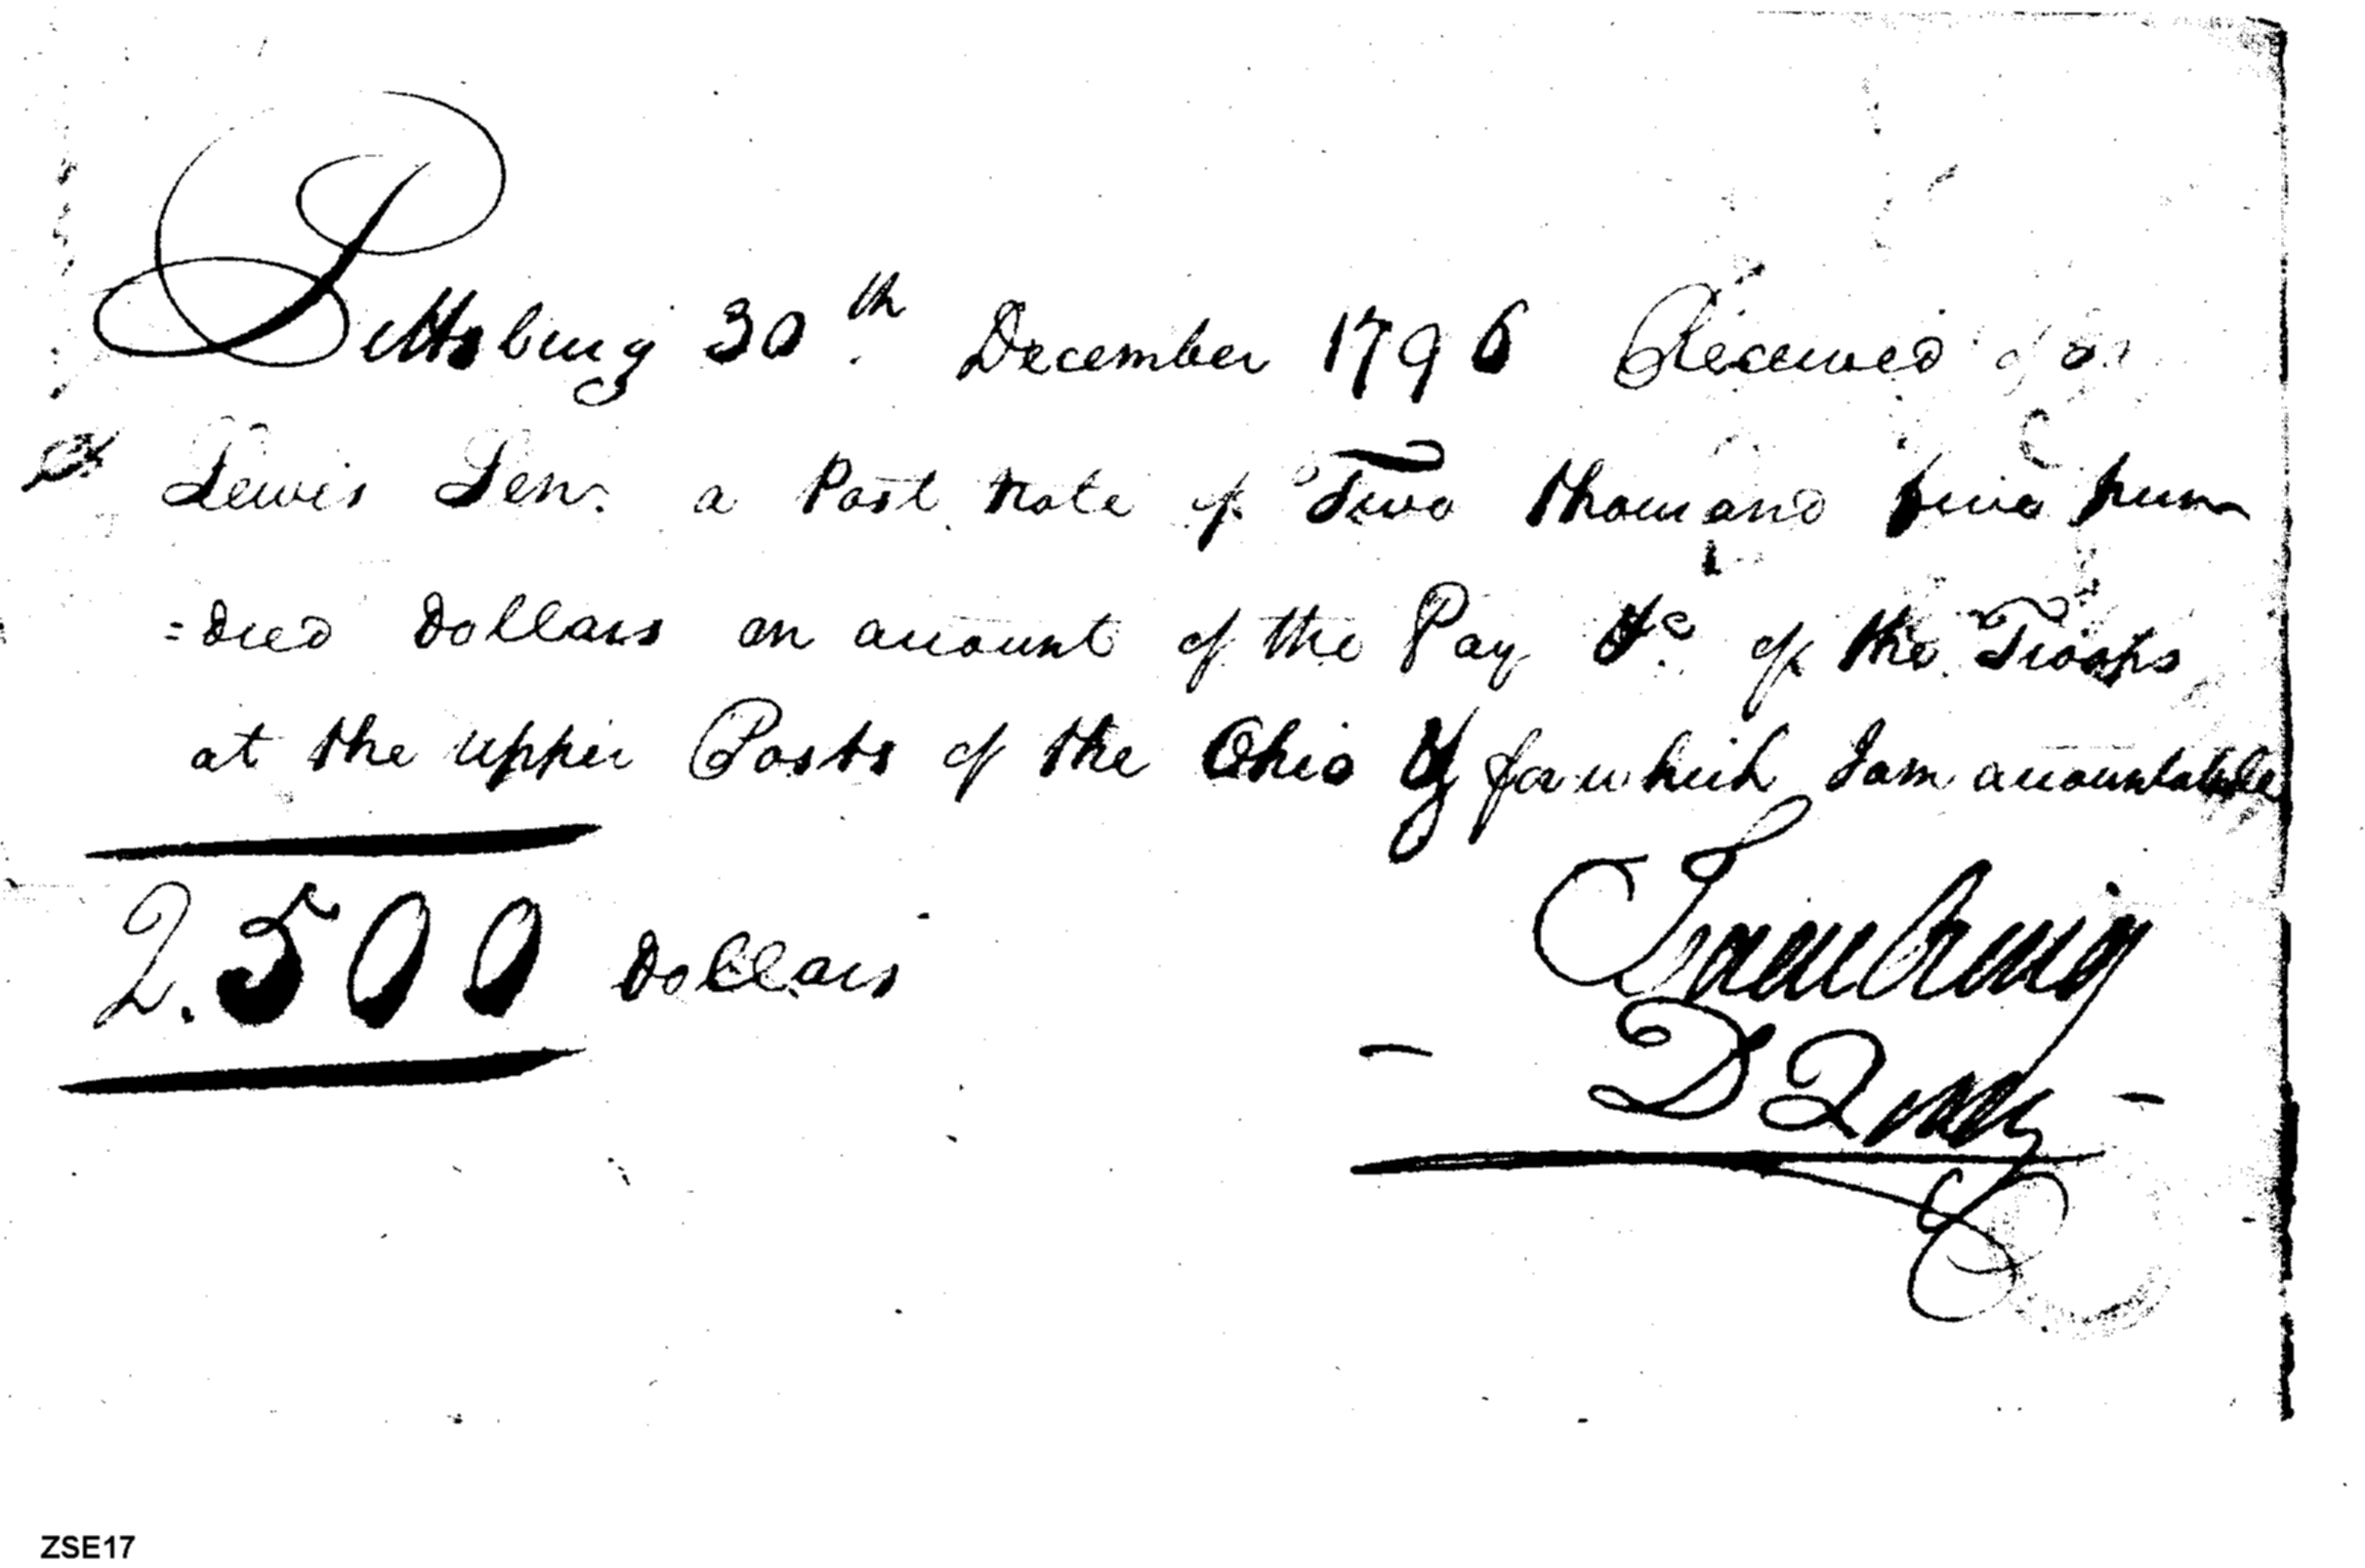 Pittsburg 30th December 1796 Received of
Lewis Senr. a Post Note of Two thousand five hun
=dred Dollars on account of the Pay &c of the Troops
at the upper Posts of the Ohio & for which I am accountable
2.500 Dollars
D Q M
ZSE17